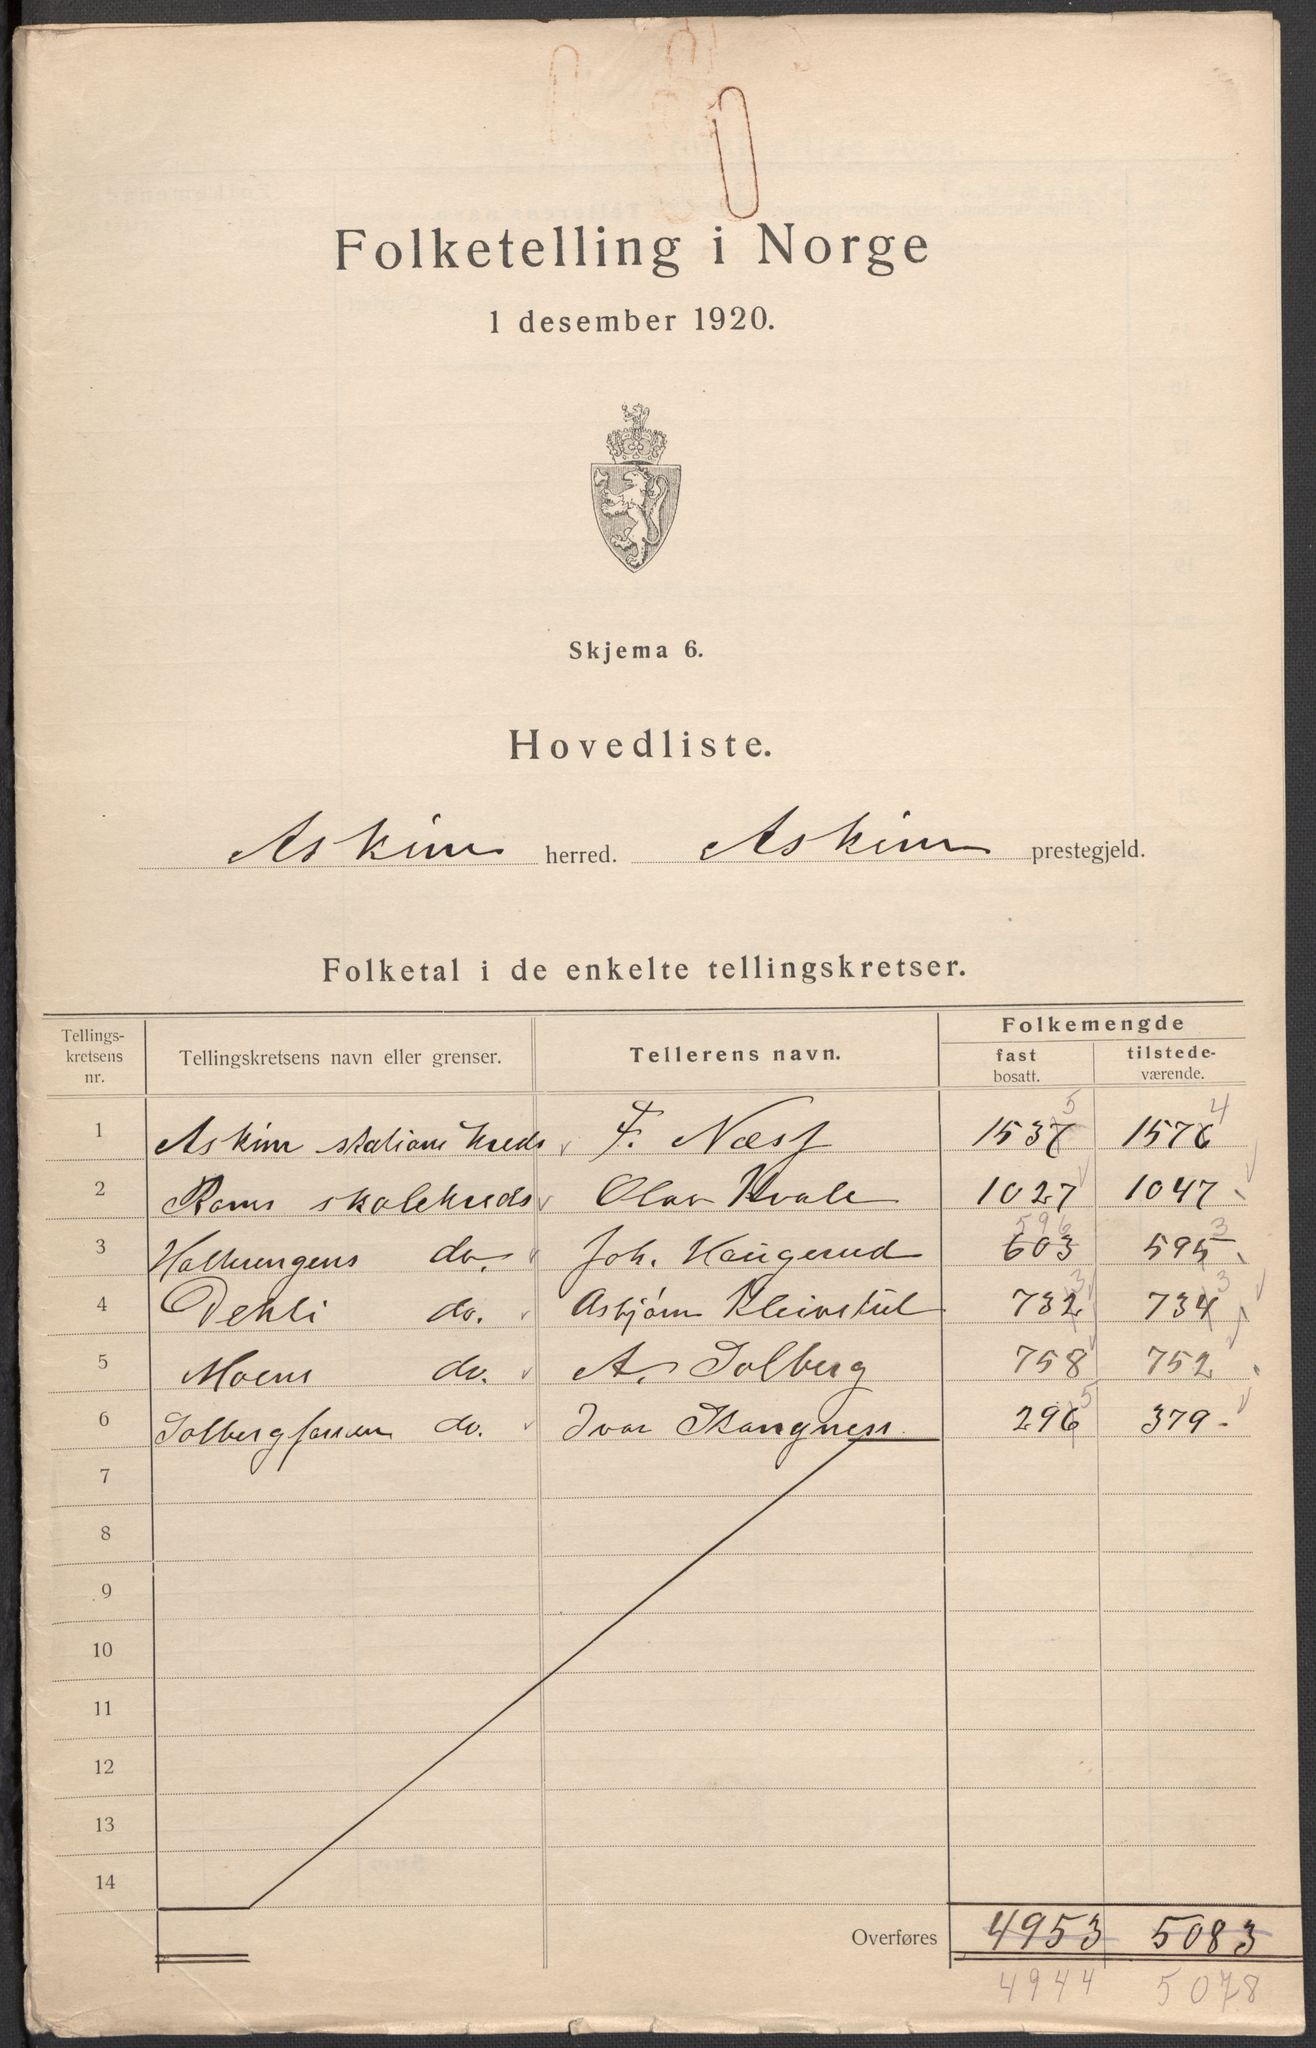 Folketelling i Norge
1 desember 1920.
Skjema 6.
Hovedliste.
Askim herred. Askim prestegjeld.
Folketal i de enkelte tellingskretser.
Tellings-
kretsens
nr.
Tellingskretsens navn eller grenser.
Tellerens navn.
Folkemengde
fast
bosatt.
tilstede-
værende.
1 Askim stations kreds F. Næss 1537 5 1576 4
2 Roms skolekreds Olav Kvale 1027 1047
3 do. Joh. Haugerud 603 596 595 3
4 Dehli do. Asbjørn Kleivstul 732 3 734 3
5 Moens do. A. Solberg 758 752
6 Solbergfossen do. Ivar 296 5 379
7
8
9
10
11
12
13
14
Overføres 4953 5083
4944 5078